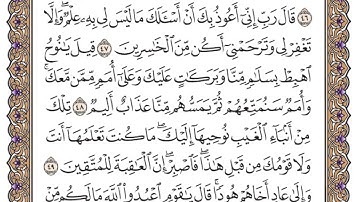 ٤٦ قَالَ رَبِّ إِنِّىٓ أَعُوذُ بِكَ أَنْ أَسْـَٔلَكَ مَا لَيْسَ لِى بِهِۦ عِلْمٌ ۖ وَإِلَّا
تَغْفِرْ لِى وَتَرْحَمْنِىٓ أَكُن مِّنَ ٱلْخَـٰسِرِينَ ٤٧ قِيلَ يَـٰنُوحُ
ٱهْبِطْ بِسَلَـٰمٍ مِّنَّا وَبَرَكَـٰتٍ عَلَيْكَ وَعَلَىٰٓ أُمَمٍ مِّمَّن مَّعَكَ ۚ
وَأُمَمٌ سَنُمَتِّعُهُمْ ثُمَّ يَمَسُّهُم مِّنَّا عَذَابٌ أَلِيمٌ ٤٨ تِلْكَ
مِنْ أَنۢبَآءِ ٱلْغَيْبِ نُوحِيهَآ إِلَيْكَ ۖ مَا كُنتَ تَعْلَمُهَآ أَنتَ
وَلَا قَوْمُكَ مِن قَبْلِ هَـٰذَا ۖ فَٱصْبِرْ ۖ إِنَّ ٱلْعَـٰقِبَةَ لِلْمُتَّقِينَ ٤٩
وَإِلَىٰ عَادٍ أَخَاهُمْ هُودًا ۚ قَالَ يَـٰقَوْمِ ٱعْبُدُوا۟ ٱللَّهَ مَا لَكُم مِّنْ